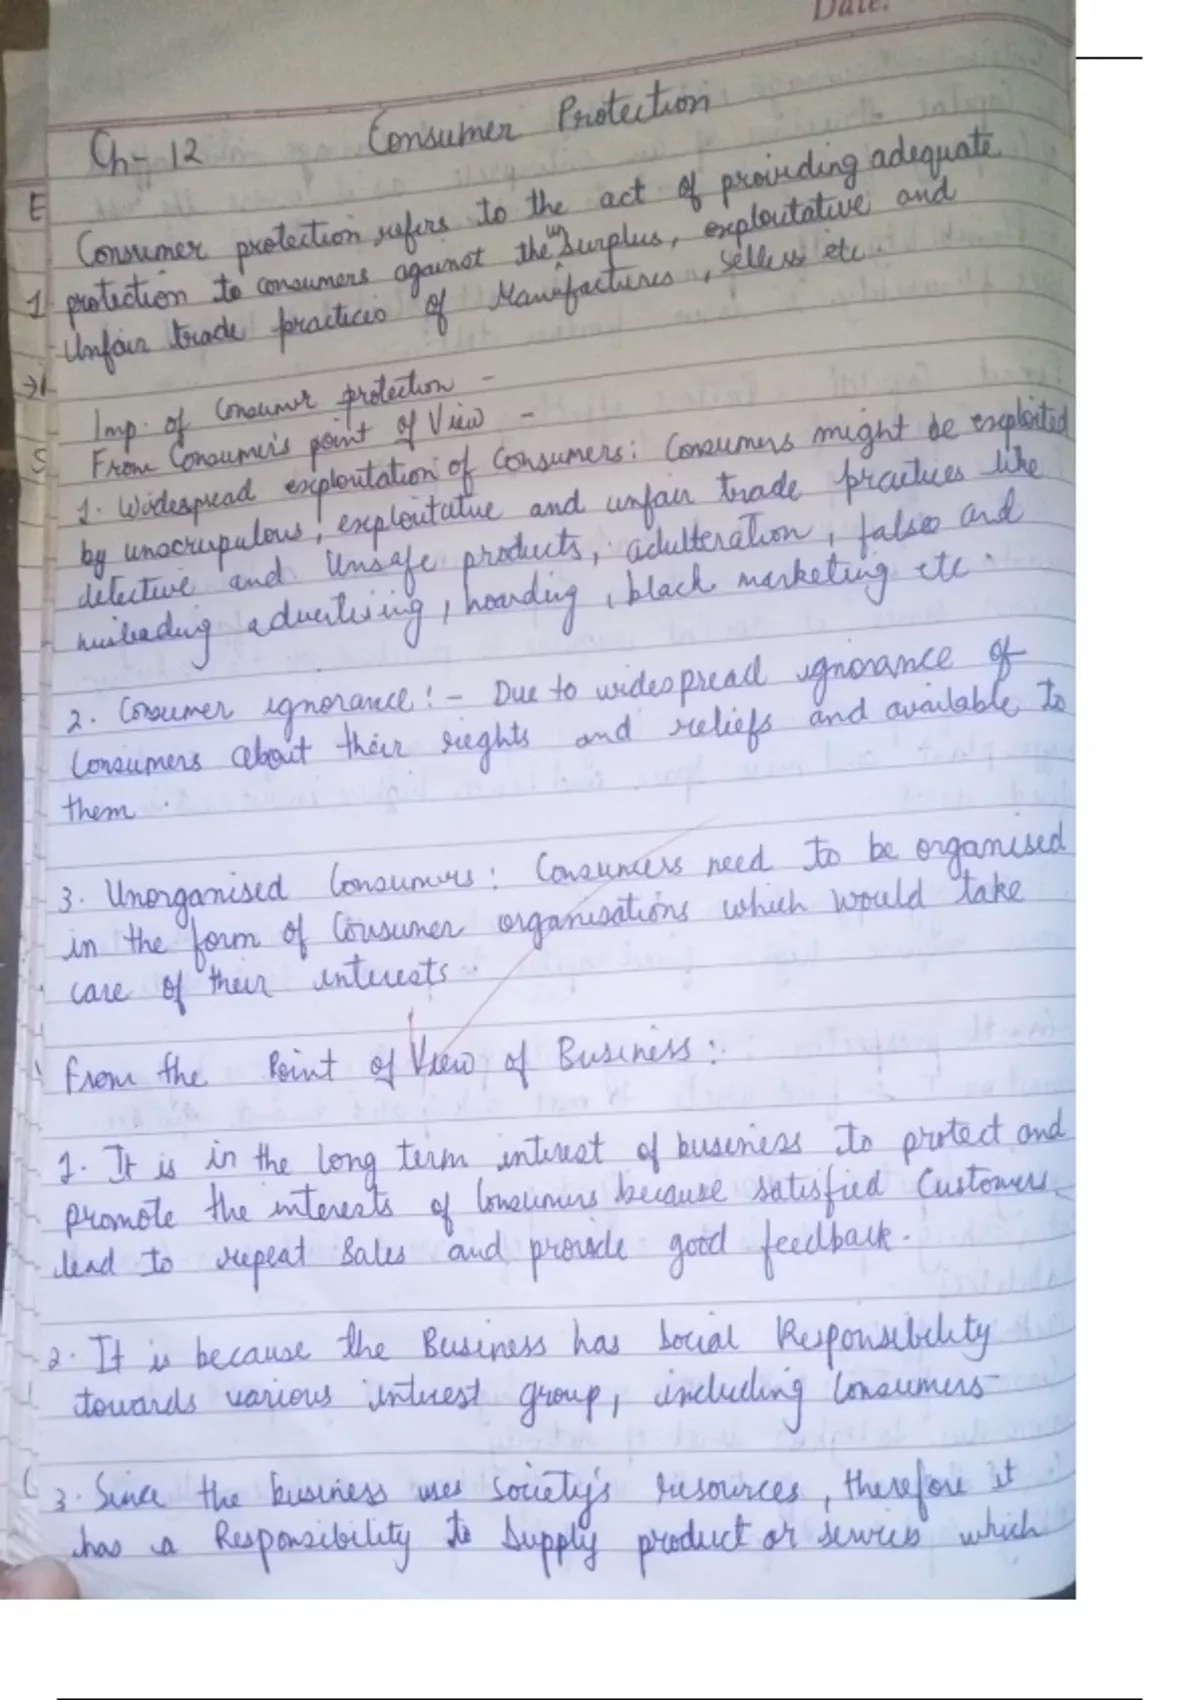 Date.
Ch- 12 Consumer Protection
Consumer protection refers to the act of providing adequate
protection to consumers against the Surplus, exploitative and
Unfair trade practices of Manufactures, sellers etc.
Imp. of Consumer protection -
From Consumer's point of View -
1. Widespread exploitation of Consumers: Consumers might be exploited
by unscrupulous, exploitative and unfair trade practices like
defective and Unsafe products, adulteration, false and
misleading advertising, hoarding, black marketing etc.
2. Consumer ignorance:- Due to widespread ignorance of
Consumers about their rights and reliefs and available to
them.
3. Unorganised Consumers: Consumers need to be organised
in the form of Consumer organisations which would take
care of their interests.
From the Point of View of Business:
1. It is in the long term interest of business to protect and
promote the interests of Consumers because satisfied Customers
lead to repeat Sales and provide good feedback.
2. It is because the Business has Social Responsibility
towards various interest group, including Consumers
3. Since the business uses Society's resources, therefore it
has a Responsibility to Supply product or services which